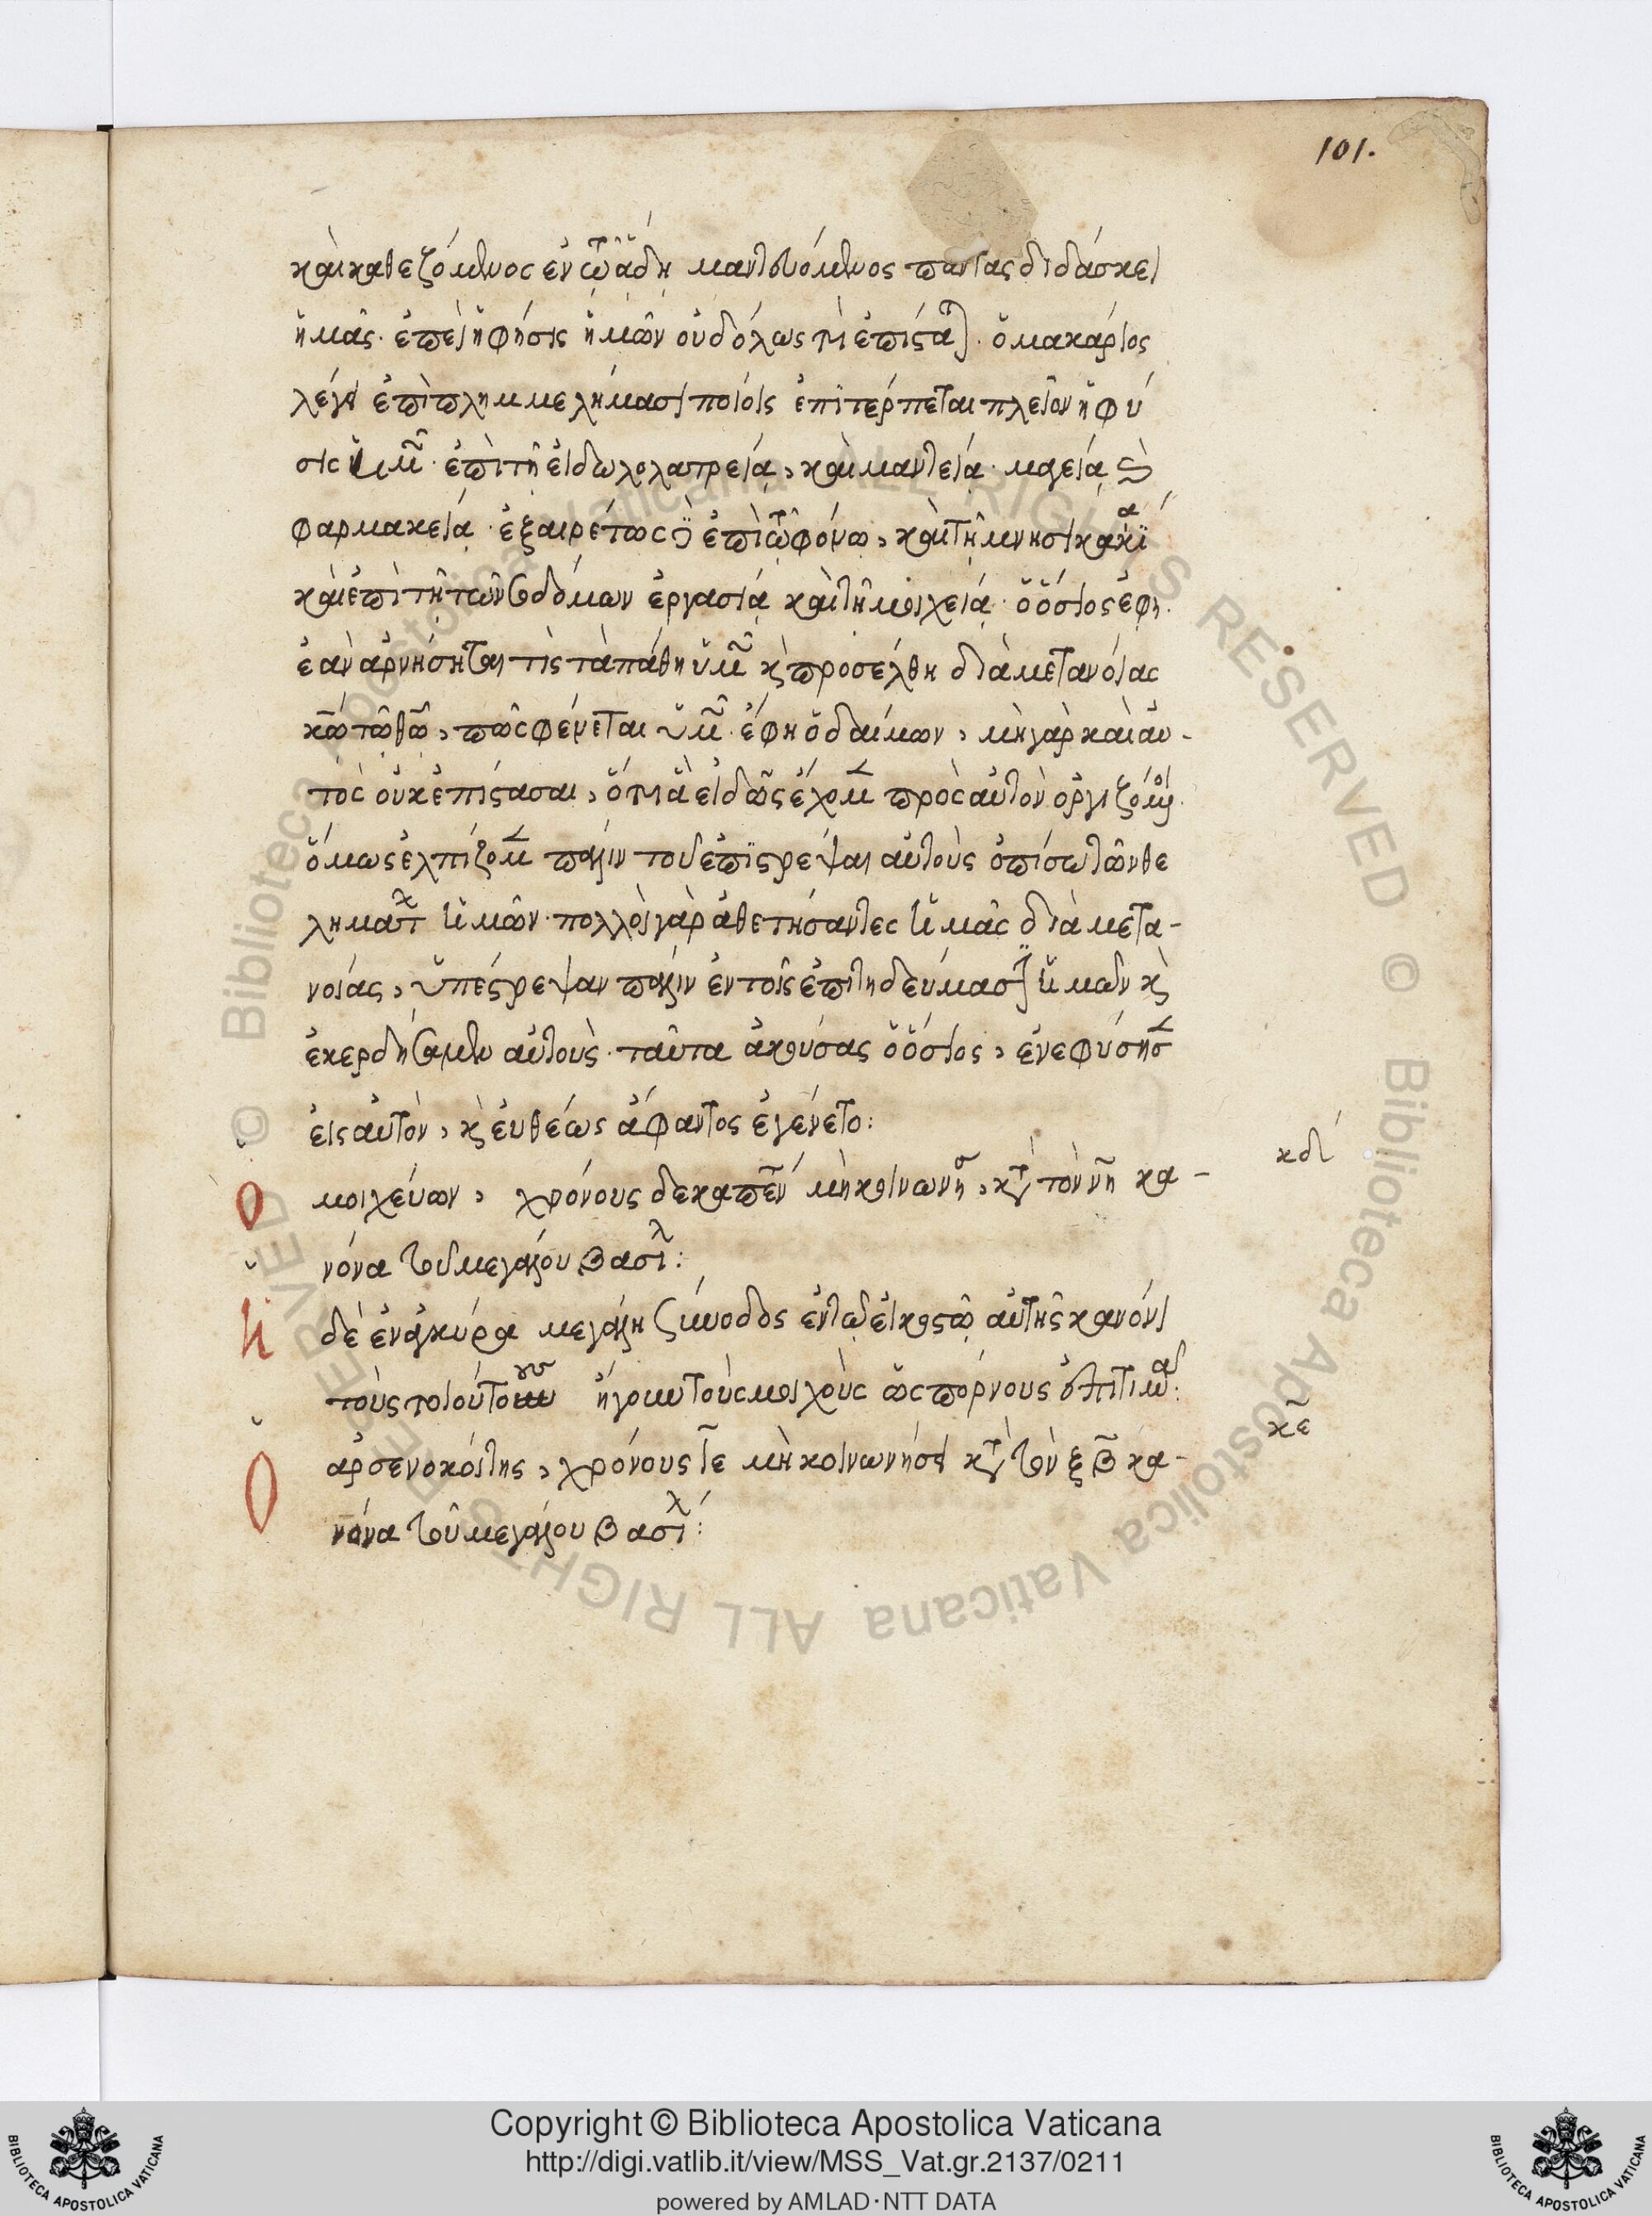 101.
καὶ καθεζόμενος ἐν τῷ ἅδῃ μαντευόμενος πάντας διδάσκει
ἡμᾶς· ἐπεὶ ἡ φύσις ἡμῶν οὐδόλως τὶ ἐπίσταται· ὁ μακάριος
λέγει ἐπὶ πλημμελήμασι ποίοις ἐπιτέρπεται πλεῖον ἡ φύ
σις ὑμῶν· ἐπὶ τῇ εἰδωλολατρείᾳ, καὶ μαντείᾳ· μαγείᾳ καὶ
φαρμακείᾳ· ἐξαιρέτως δὲ ἐπὶ τῷ φόνῳ, καὶ τῇ μνησικακίᾳ
καὶ ἐπὶ τῇ τῶν σοδόμων ἐργασίᾳ καὶ τῇ μοιχείᾳ· ὁ ὅσιος ἔφη·
ἐὰν ἀρνήσηται τὶς τὰ πάθη ὑμῶν καὶ προσέλθη διὰ μετανοίας
κῶ τῶ θῶ, πῶς φένεται ὑμῖν· ἔφη ὁ δαίμων, μὴ γὰρ καὶ αὐ-
τὸς οὐκ ἐπίστασαι, ὅτι ἀειδῶς ἔχομεν πρὸς αὐτὸν ὀργιζόμενοι·
ὅμως ἐλπίζομεν πάλιν τοῦ ἐπιστρέψαι αὐτοὺς ὀπίσω τῶν θε
λημάτων ἡμῶν· πολλοὶ γὰρ ἀθετήσαντες ἡμᾶς διὰ μετα-
νοίας, ὑπέστρεψαν πάλιν ἐν τοῖς ἐπιτηδεύμασιν ἡμῶν καὶ
ἐκερδήσαμεν αὐτούς· ταῦτα ἀκούσας ὁ ὅσιος, ἐνεφύσησεν
εἰς αὐτόν, καὶ εὐθέως ἄφαντος ἐγένετο:
Ὁ μοιχεύων, χρόνους δεκαπέντε μὴ κοινωνήσει, κατὰ τὸν νη κα-
κδ
νόνα τοῦ μεγάλου βασιλείου:
Ἡ δὲ ἐν ἀγκύρα μεγάλη σύνοδος ἐν τῷ εἰκοστῷ αὐτῆς κανόνι
τοὺς τοιούτους ἤγουν τοὺς μοιχοὺς ὡς πόρνους ἐπιτιμᾶ:
Ὁ ἀρσενοκοίτης, χρόνους ιε μὴ κοινωνήσει κατὰ τὸν ξβ κα-
κε
νόνα τοῦ μεγάλου βασιλείου:
© Biblioteca Apostolica Vaticana ALL RIGHTS RESERVED © Biblioteca Apostolica Vaticana ALL RIGHTS RESERVED
Copyright © Biblioteca Apostolica Vaticana
http://digi.vatlib.it/view/MSS_Vat.gr.2137/0211
powered by AMLAD·NTT DATA
BIBLIOTECA APOSTOLICA VATICANA
BIBLIOTECA APOSTOLICA VATICANA